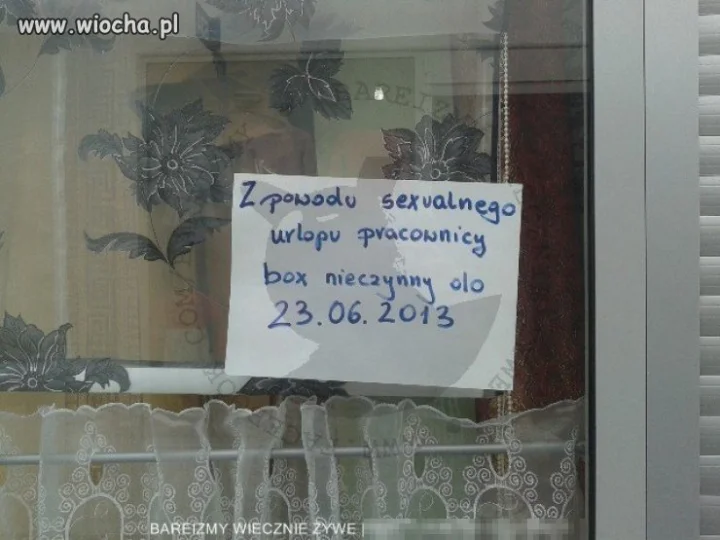 www.wiocha.pl
Z powodu sexualnego
urlopu pracownicy
box nieczynny do
23.06.2013
BAREIZMY WIECZNIE ŻYWE |